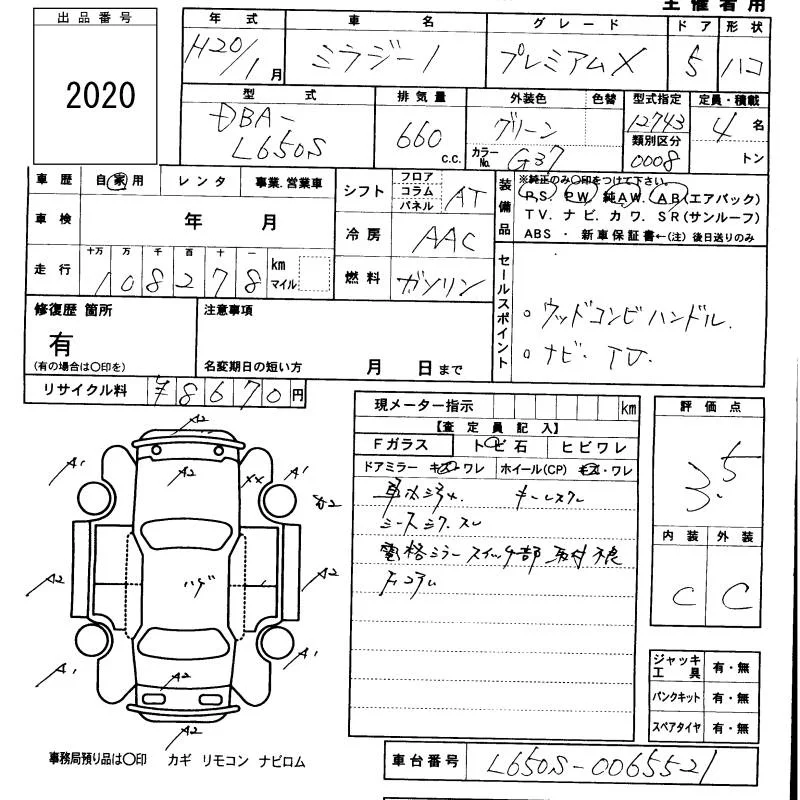 主催者用
出品番号
2020
年式 車名 グレード ドア 形状
H20/1月 ミラジーノ プレミアムX 5 ハコ
型式 排気量 外装色 色替 型式指定 定員・積載
DBA-L650S 660 c.c. グリーン 12743 4名
カラーNo. G37 類別区分 0008 トン
車歴 自家用 レンタ 事業.営業車
車検 年 月
走行 十万 万 千 百 十
108278 km マイル
シフト フロア コラム パネル AT
冷房 AAC
燃料 ガソリン
装備品 ※純正のみ○印をつけて下さい。
P.S. P.W. 純A.W. A.B(エアバック)
T.V. ナビ. カワ. S.R(サンルーフ)
ABS ・ 新車保証書←(注) 後日送りのみ
セールスポイント
○ ウッドコンビハンドル.
○ ナビ. TV.
修復歴 箇所
有
(有の場合は○印を)
注意事項
名変期日の短い方 月 日まで
リサイクル料 ¥8670円
現メーター指示 km
【査定員記入】
Fガラス トビ石 ヒビワレ
ドアミラー キズ・ワレ ホイール(CP) キズ・ワレ
キーレスクレ
シートシワ.スレ
電格ミラースイッチ部 取付不良
評価点
3.5
内装 外装
C C
A2
A1 A2 XX A1
A2
A2 ハゲ A2
A1 A2 A1
A2
ジャッキ工具 有・無
パンクキット 有・無
スペアタイヤ 有・無
事務局預り品は○印 カギ リモコン ナビロム
車台番号 L650S-0065521